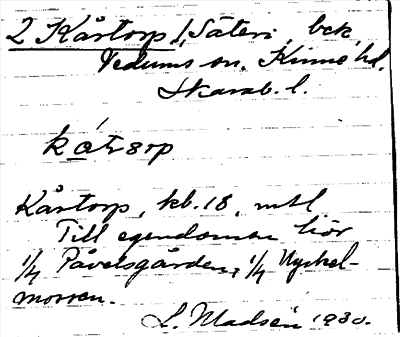 2 Kårtorp f. Säteri, bek.
Vedums sn. Kinne hd.
Skarab. l.
kártorp
Kårtorp, kb. 18, mtl
Till egendomen hör
1/4 Påvelsgården, 1/4 Nyckel-
mossen.
L. Madsén 1930.